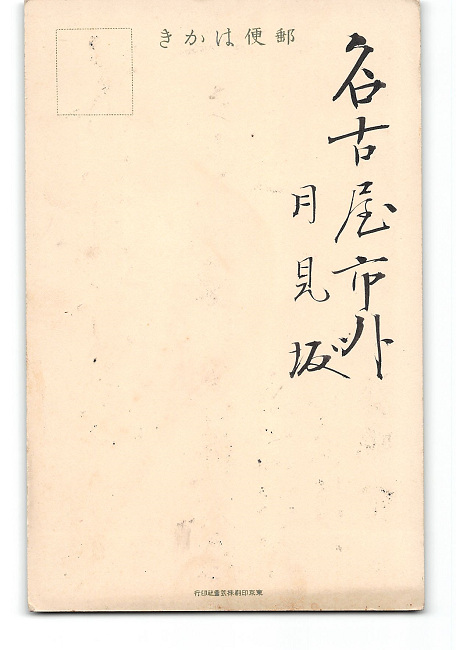 郵便はかき
名古屋市外
月見坂